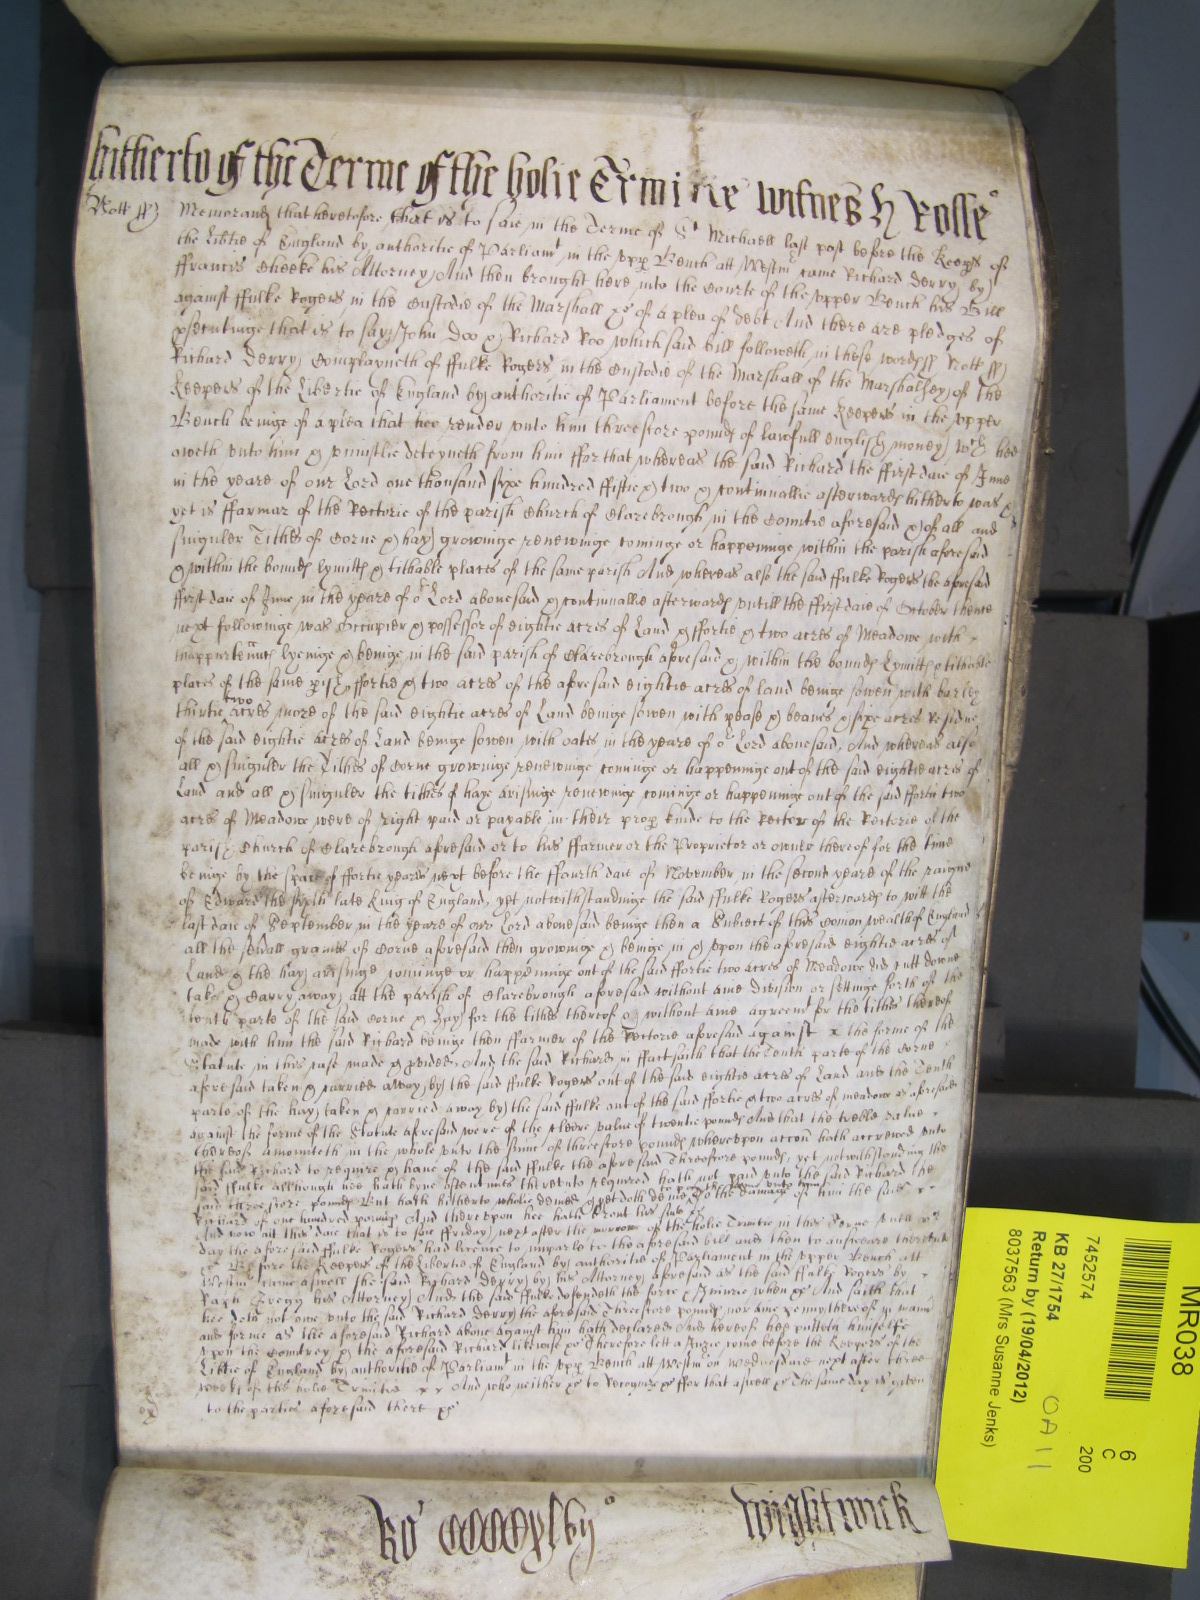 hitherto of the Terme of the holie Trinitie Witnes H Rolle
Nott ss Memorand that heretofore that is to saie in the Terme of St Michaell last past before the Keeps of
the Libtie of England by authoritie of Parliamt in the upp Bench att Westm came Richard Derry by
ffrancis Cheeke his Attorney And then brought here into the Courte of the upper Bench his Bill
against ffulke Rogers in the Custodie of the Marshall &c of a plea of debt And there are pledges of
psecutinge that is to say John Doo & Richard Roo which said bill followeth in these words ss Nott ss
Richard Derry Complayneth of ffulke Rogers in the Custodie of the Marshall of the Marshalsey of the
Keepers of the Libertie of England by authoritie of Parliament before the same Keepers in the upper
Bench beinge of a plea that hee render unto him threescore pounds of lawfull english money wch hee
oweth unto him & uniustlie deteyneth from him ffor that whereas the said Richard the ffirst daie of June
in the yeare of our Lord one thousand sixe hundred ffiftie & two & continuallie afterwards hitherto was &
yet is ffarmar of the Rectorie of the parish Church of Clarebrough in the Countie aforesaid & of all and
singuler Tithes of Corne & hay growinge renewinge cominge or happeninge within the parish aforesaid
& within the bounds lymitts & tithable places of the same parish And whereas also the said ffulke Rogers the aforesaid
ffirst daie of June in the yeare of or Lord abovesaid & continuallie afterwards untill the ffirst daie of October thence
next followinge was Occupier & possessor of eightie acres of Land & ffortie & two acres of Meadowe with
thappurtenncs lyeinge & beinge in the said parish of Clarebrough aforesaid & within the bounds Lymitts & tithable
places of the same pish ffortie & two acres of the aforesaid eightie acres of land beinge sowen with barley
thirtie two acres more of the said eightie acres of Land beinge sowen with pease & beanes & sixe acres Residue
of the said eightie acres of Land beinge sowen with oates in the yeare of or Lord abovesaid, And whereas also
all & singuler the Tithes of Corne growinge renewinge cominge or happeninge out of the said eightie acres of
Land and all & singuler the tithes of haye ariseinge renewinge cominge or happeninge out of the said ffortie two
acres of Meadowe were of right paid or payable in their prop kinde to the Rector of the Rectorie of the
parish Church of Clarebrough aforesaid or to his ffarmer or the Proprietor or owner thereof for the time
beinge by the space of ffortie yeares next before the ffourth daie of November in the second yeare of the raigne
of Edward the sixth late King of England, yet notwithstandinge the said ffulke Rogers afterwards to witt the
last daie of September in the yeare of our Lord abovesaid beinge then a Subiect of this Comon wealth of England
all the sevall graines of Corne aforesaid then growinge & beinge in & upon the aforesaid eightie acres of
Land & the hay arisinge cominge or happeninge out of the said ffortie two acres of Meadowe did cutt downe
take & Carry away att the parish of Clarebrough aforesaid without anie division or settinge forth of the
tenth parte of the said Corne & Hay for the tithes thereof & without anie agreemt for the tithes thereof
made with him the said Richard beinge then ffarmer of the Rectorie aforesaid against x the forme of the
Statute in this case made & pvided. And the said Richard in ffact saith that the Tenth parte of the Corne
aforesaid taken & carried away by the said ffulke Rogers out of the said eightie acres of Land and the Tenth
parte of the hay taken & carried away by the said ffulke out of the said ffortie & two acres of meadow as aforesaid
against the forme of the Statute aforesaid were of the cleere value of twentie pounds And that the treble value
thereof amounteth in the whole unto the sume of threescore pounds whereupon accon hath accrewed unto
the said Richard to require & have of the said ffulke the aforesaid Threescore pounds, yet notwithstanding the
said ffulke although hee hath byne oftentimes thereunto required hath not paid unto the said Richard the
said threescore pounds But hath hitherto wholie denied & yet doth denie to pay the same unto him To the damage of him the said
Richard of one hundred pounds And thereupon hee hath brought his suite &c
And now att this daie that is to saie ffriday next after the morrow of the holie Trinitie in this Terme untill wch
day the aforesaid ffulke Rogers had licence to imparle to the aforesaid bill and then to answeare thereunto
&c Before the Keepers of the Libertie of England by authoritie of Parliament in the upper Bench att
Westm came aswell the said Richard Derry by his Attorney aforesaid as the said ffulke Rogers by
Raph Gregg his Attorney And the said ffulke defendeth the force & Iniurie when &c And saith that
hee doth not owe unto the said Richard Derry the aforesaid Threescore pounds nor anie penny thereof in manr
and forme as the aforesaid Richard above against him hath declared And hereof hee putteth himselfe
upon the Countrey & the aforesaid Richard likewise &c Therefore lett a Jurie come before the Keepers of the
Libtie of England by authoritie of Parliamt in the upp Bench att Westm on Wednesdaie next after three
weeks of the holie Trinitie x x And who neither &c to Recognize &c ffor that aswell &c The same day is given
to the parties aforesaid there &c
Ro Wightwick
MR038
7452574
6
C
200
KB 27/1754
Return by (19/04/2012)
8037563 (Mrs Susanne Jenks)
OA 11